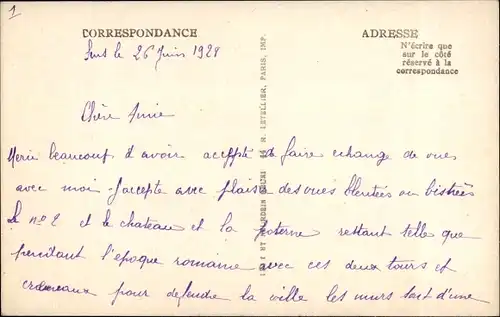 1
CORRESPONDANCE
ADRESSE
Sens le 26 Juin 1928
N'écrire que
sur le côté
réservé à la
correspondance
LETELLIER, PARIS, IMP.
Chère Amie
Merci beaucoup d'avoir accepté de faire echange de vues
avec moi - J'accepte avec plaisir des vues teintées ou bistrées
Le no 2 et le chateau et la poterne restant telle que
pendant l'époque romaine avec ces deux tours et
créneaux pour defendre la ville les murs sont d'une